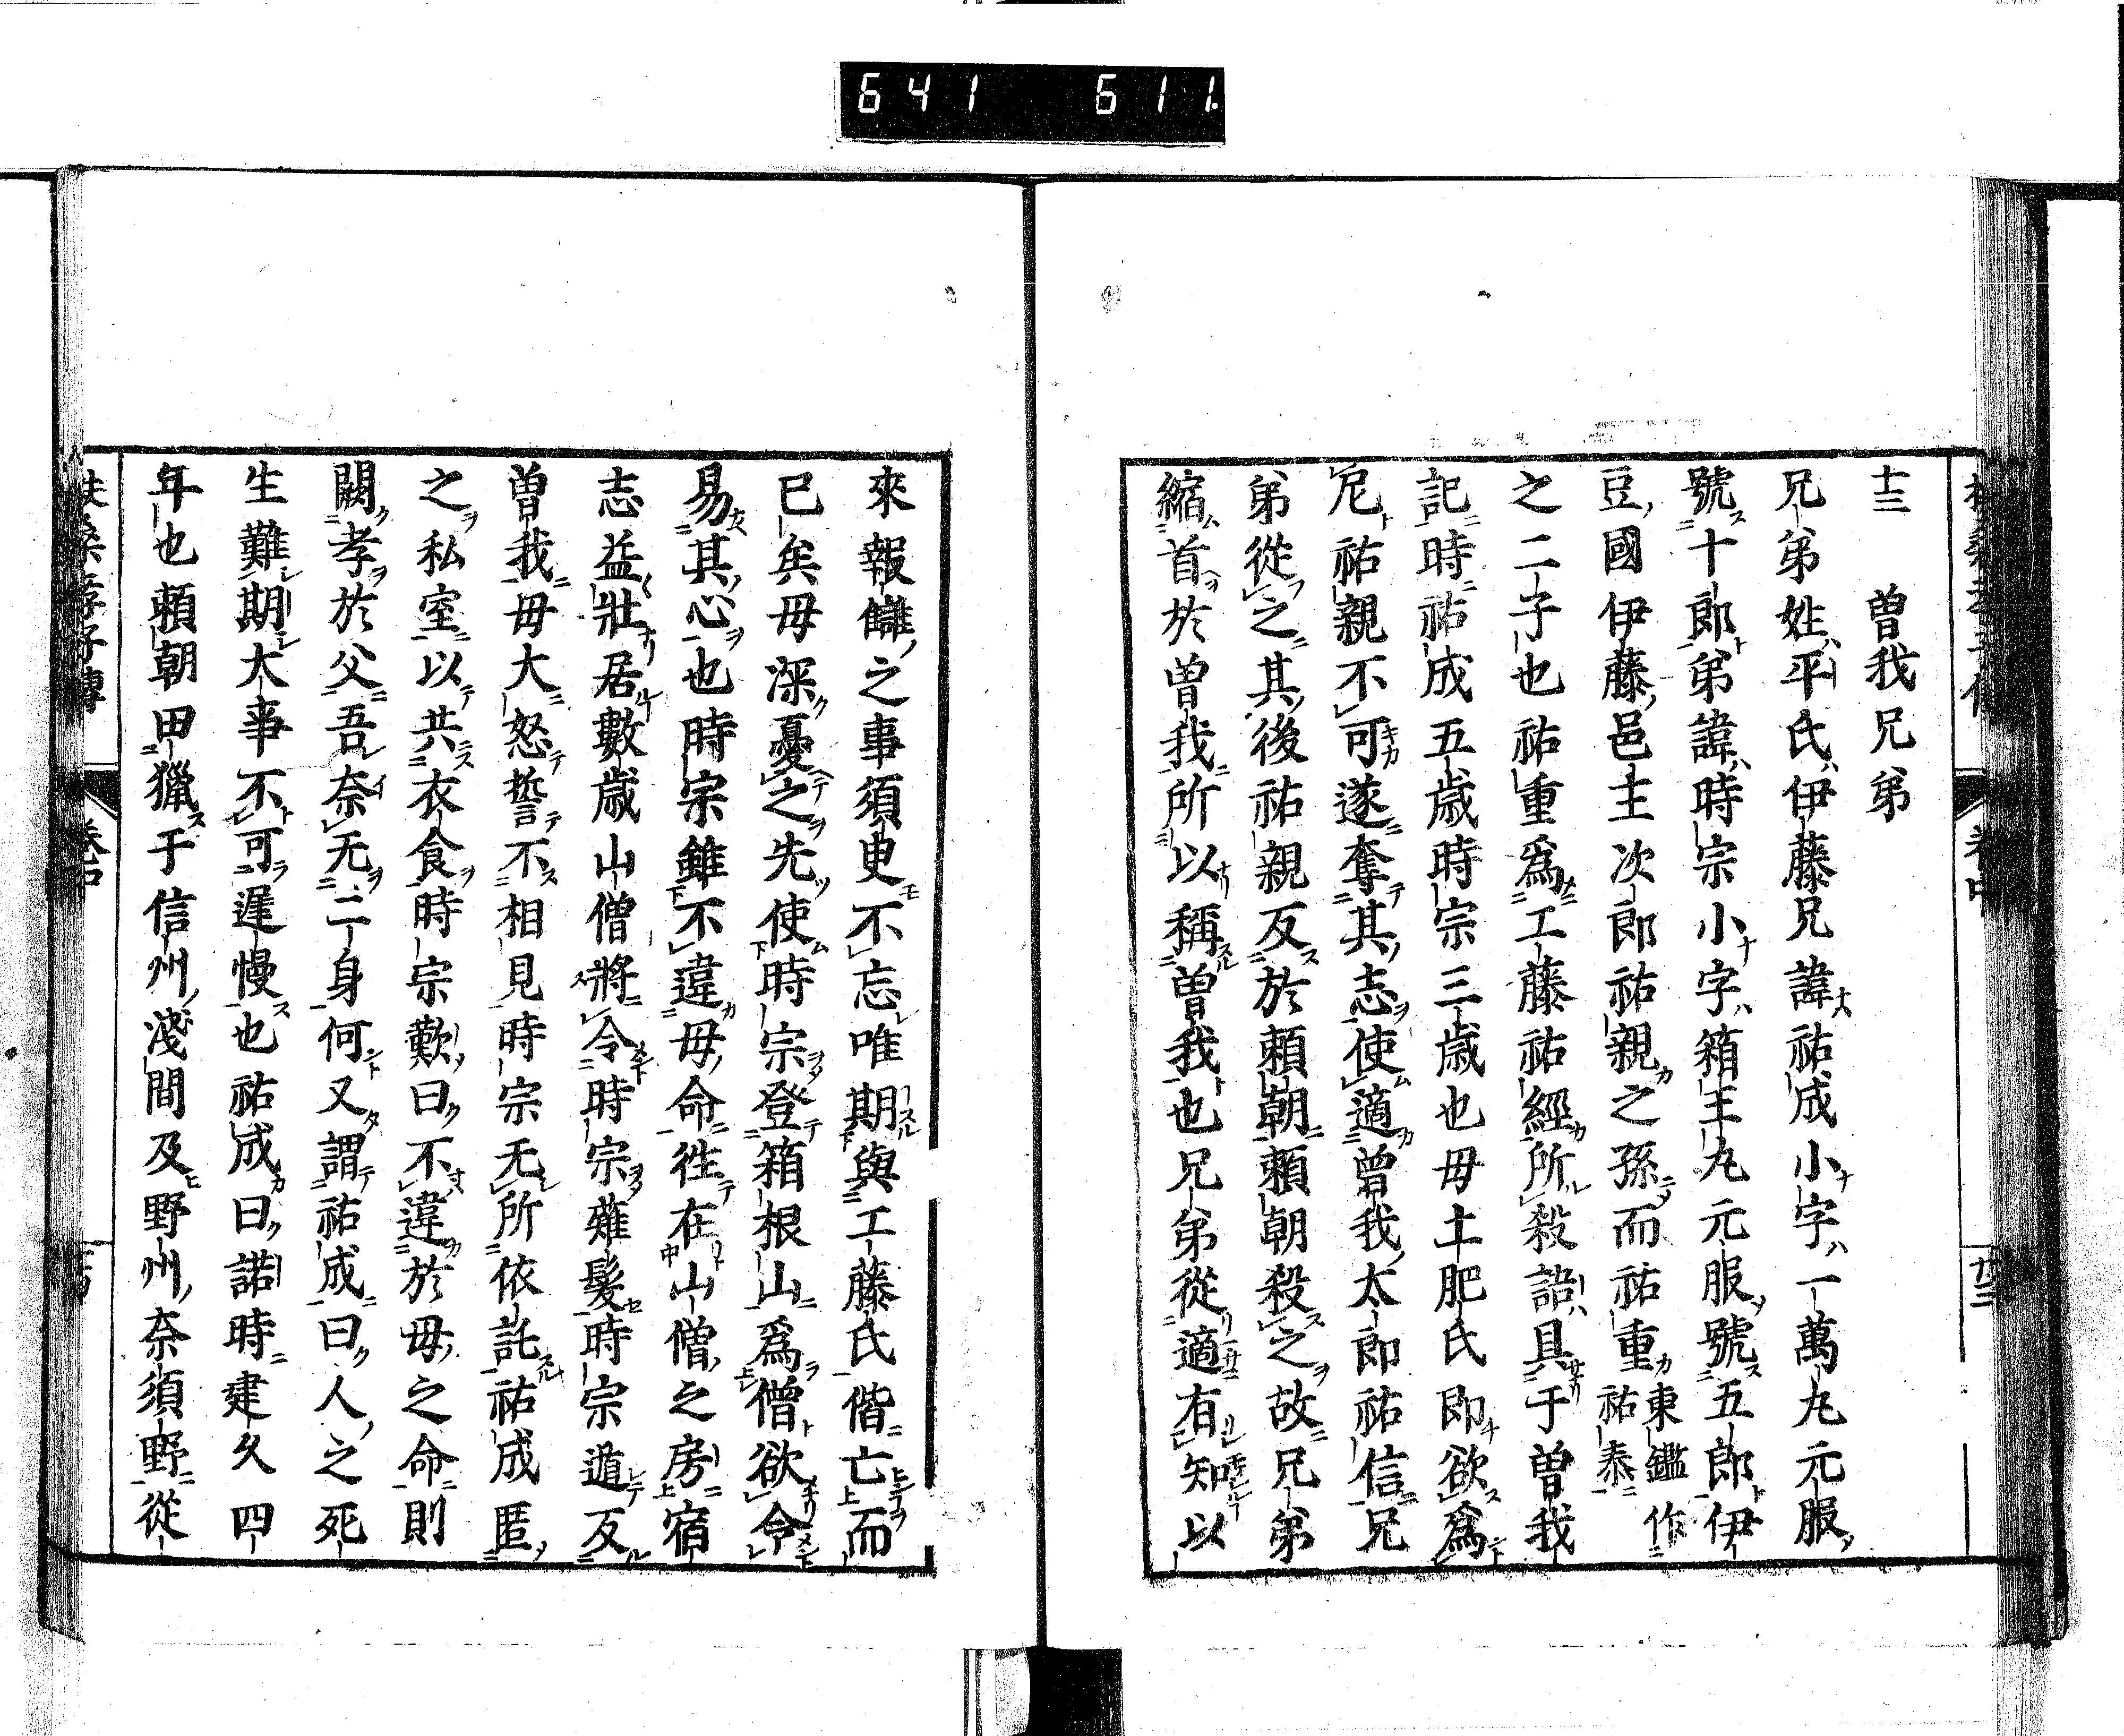 641 611
十三 曽我兄弟
兄弟姓平氏伊藤兄諱祐成小字一萬丸元服
號十郎弟諱時宗小字箱王丸元服號五郎伊
豆國伊藤邑主次郎祐親之孫而祐重東鑑作祐泰
之二子也祐重爲工藤祐經所殺語具于曽我
記時祐成五歳時宗三歳也母土肥氏即欲爲
尼祐親不可遂奪其志使適曽我太郎祐信兄
弟從之其後祐親反於頼朝頼朝殺之故兄弟
縮首於曽我所以稱曽我也兄弟從適有知以
來報讎之事須臾不忘唯期與工藤氏偕亡而
已矣母深憂之先使時宗登箱根山爲僧欲令
易其心也時宗雖不違母命徃在山僧之房宿
志益壯居數歳山僧將令時宗薙髮時宗遁反
曽我母大怒誓不相見時宗无所依託祐成匿
之私室以共衣食時宗歎曰不違於母之命則
闕孝於父吾奈无二身何又謂祐成曰人之死
生難期大事不可遲慢也祐成曰諾時建久四
年也頼朝田獵于信州淺間及野州奈須野從
扶桑孝子傳 卷中